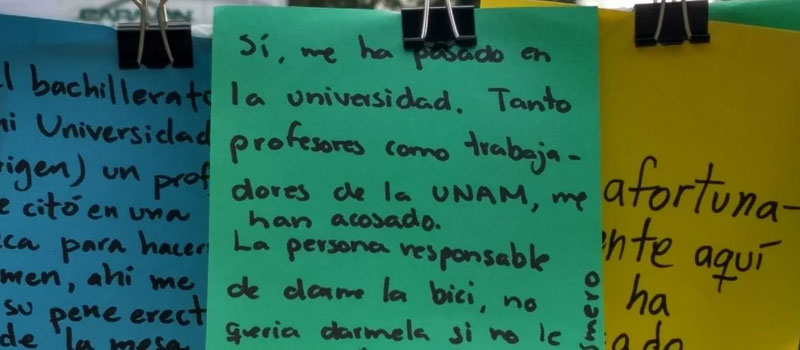 l bachillerato
ni Universidad
igen) un prof
e citó en una
ca para hacer
men, ahi me
su pene erect
de la mesa
Sí, me ha pasado en
la universidad. Tanto
profesores como trabaja-
dores de la UNAM, me
han acosado.
La persona responsable
de darme la bici, no
queria darmela si no le
smero
afortuna-
nte aquí
ha
ado